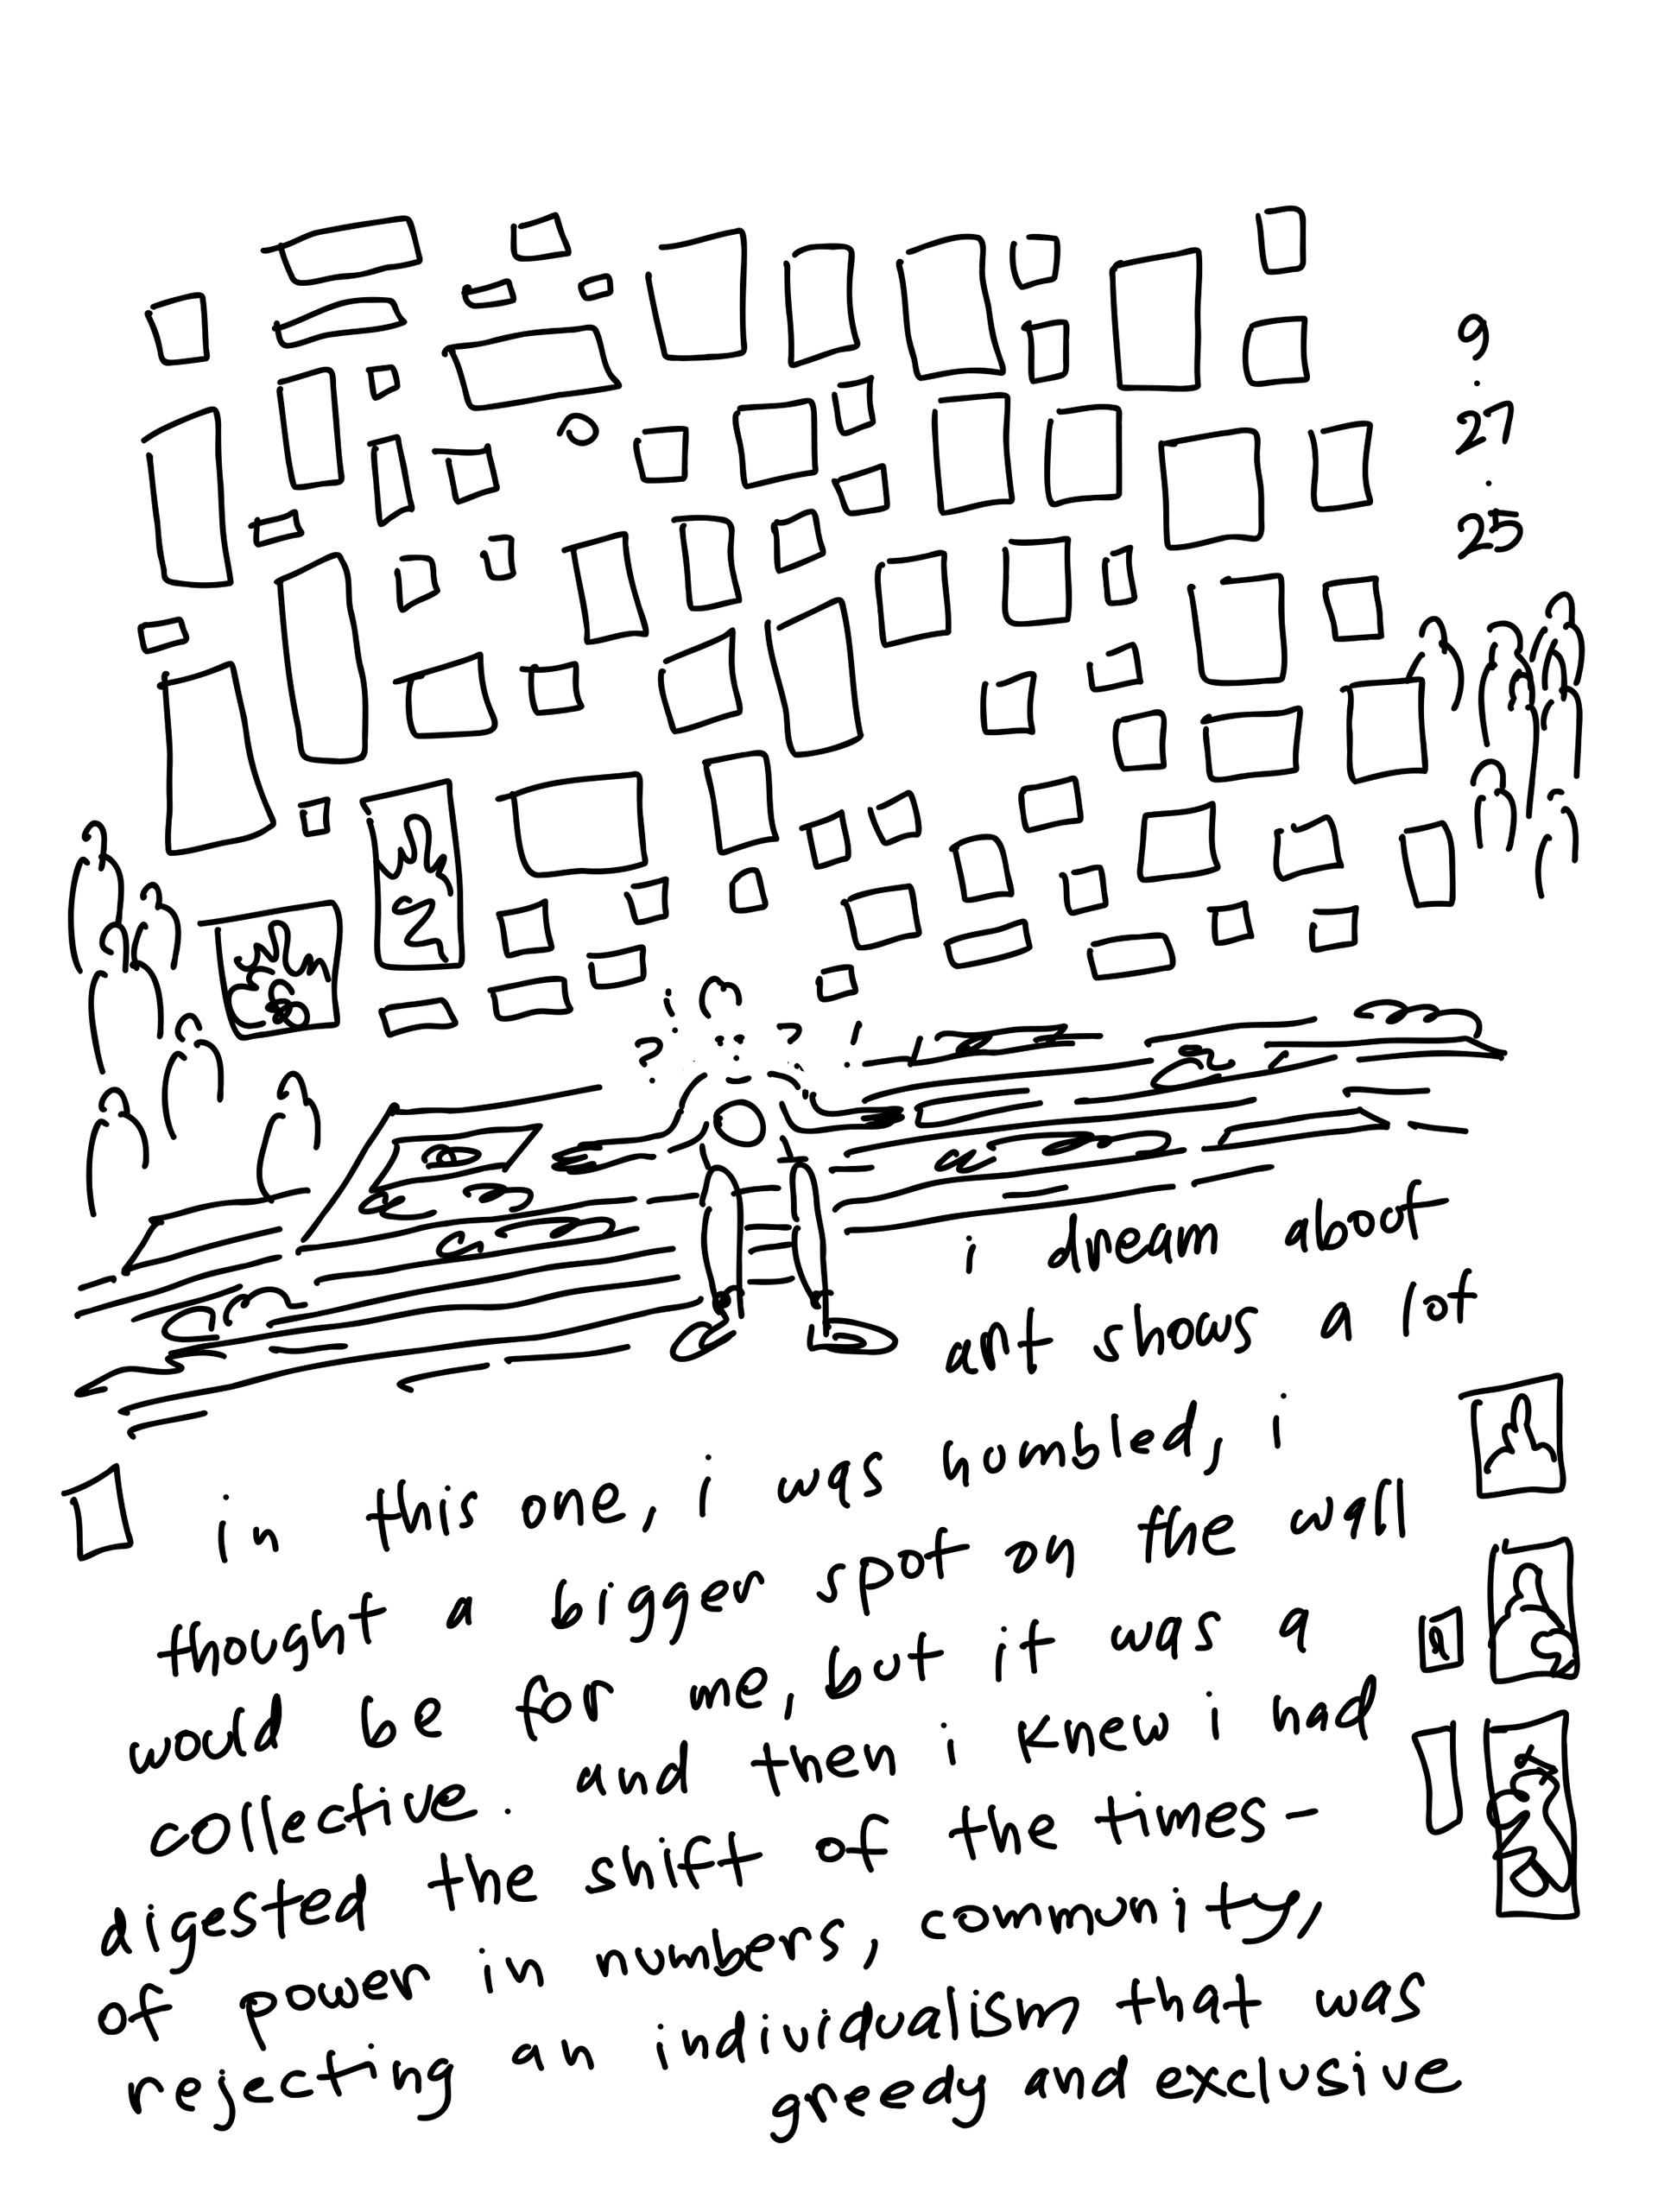 9
.
27
.
25
i dream about
art shows a lot
in this one, i was humbled, i
thought a bigger spot on the wall
would be for me, but it was a
collective. and then i knew i had
digested the shift of the times-
of power in numbers, community,
rejecting an individualism that was
greedy and exclusive